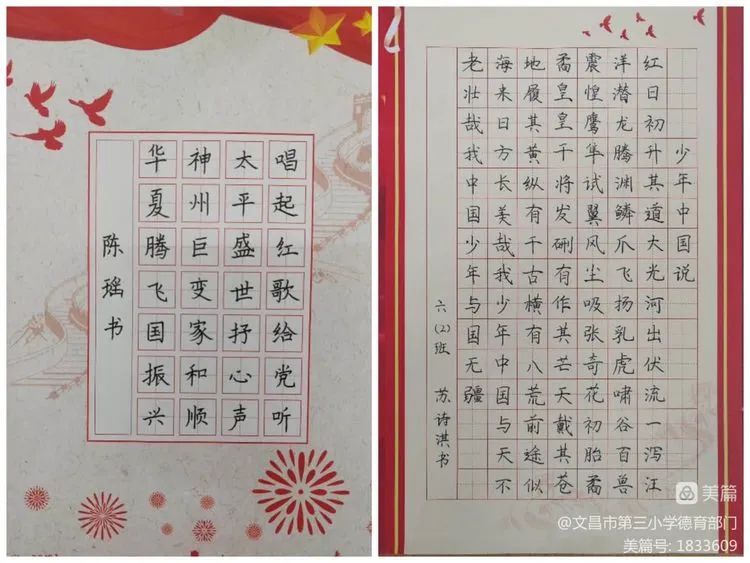 唱起红歌给党听
太平盛世抒心声
神州巨变家和顺
华夏腾飞国振兴
陈瑶书
少年中国说
红日初升其道大光河出伏流一泻江
洋潜龙腾渊鳞爪飞扬乳虎啸谷百兽
震惶鹰隼试翼风尘吸张奇花初胎矞
矞皇皇干将发硎有作其芒天戴其苍
地履其黄纵有千古横有八荒前途似
海来日方长美哉我少年中国与天不
老壮哉我中国少年与国无疆
六(2)班 苏诗淇书
美篇
@文昌市第三小学德育部门
美篇号: 1833609